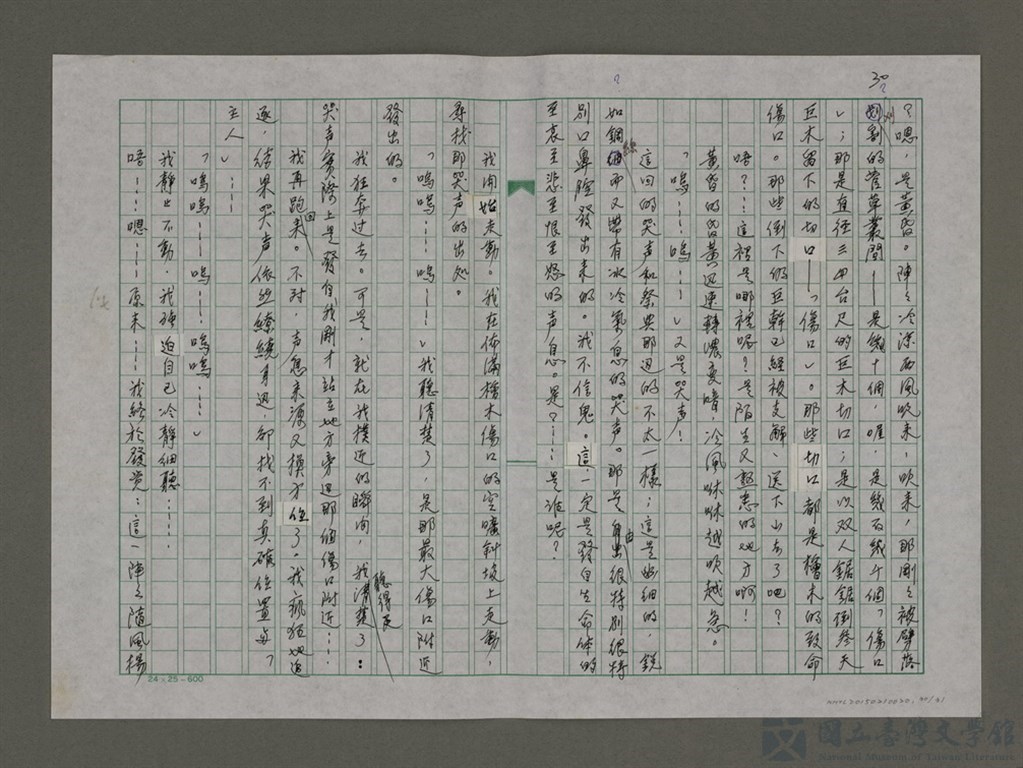 30
？嗯，是黃昏。陣々冷深西風吹來，吹來，那剛々被劈落
割的菅草叢間——是幾十個，喔，是幾百幾千個「傷口
」；那是直徑三四台尺的巨木切口；是以双人鋸鋸倒參天
巨木留下的切口——「傷口」。那些切口都是檜木的致命
傷口。那些倒下的巨幹已經被支解、送下山去了吧？
唔？……這裡是哪裡呢？是陌生又熟悉的地方啊！
黃昏的昏黃迅速轉濃變暗，冷風咻咻越吹越急。
「嗚……嗚……」又是哭声！
這回的哭声和祭典那迴的不太一樣；這是幽細的，銳
如鋼絲而又帶有冰冷氣息的哭声。那是由很特別很特
別口鼻腔發出來的。我不信鬼。這，一定是發自生命体的
至哀至悲至恨至怒的声息。是？……是誰呢？
我開始走動。我在佈滿檜木傷口的空曠斜坡上走動，
尋找那哭声的出処。
「嗚嗚……嗚……」我聽清楚了，是那最大傷口附近
發出的。
我狂奔过去。可是，就在我撲近的瞬间，我聽得清楚了：
哭声实際上是發自我剛才站立地方旁边那個傷口附近……
我再跑回來。不对，声息來源又換方位了。我瘋狂地追
逐，結果哭声依然繚繞身边，卻找不到真確位置與「
主人」……
「嗚嗚……嗚……嗚嗚……」
我靜止不動，我強迫自己冷靜細聽……
唔……嗯……原來……我終於發覺：這一陣々隨風揚
24×25=600
NMTL20150210020, 30/31
國立臺灣文學館
National Museum of Taiwan Literature